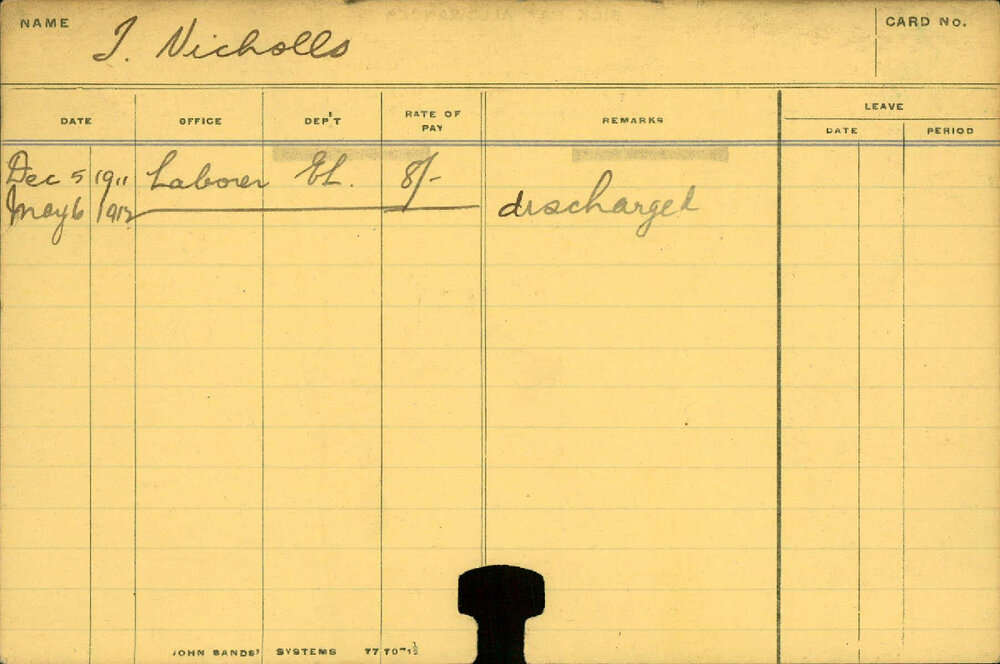 NAME J. Nicholls CARD No.
DATE OFFICE DEP'T RATE OF PAY REMARKS LEAVE
DATE PERIOD
Dec 5 1911 Laborer EL. 8/-
May 6 1912 discharged
JOHN SANDS' SYSTEMS